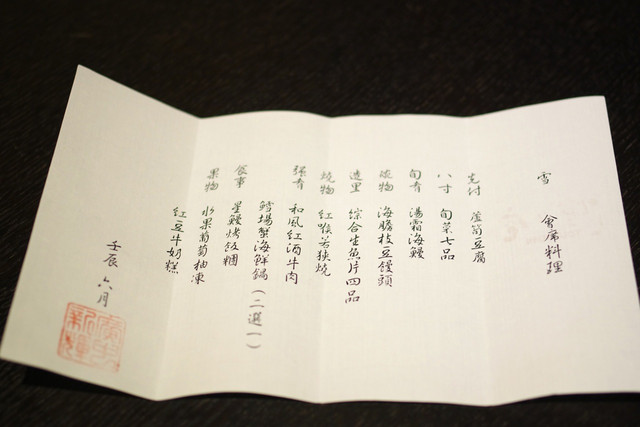 雪 會席料理
先付 蘆筍豆腐
八寸 旬菜七品
旬肴 湯霜海鰻
焚物 海膽枝豆饅頭
造里 綜合生魚片四品
燒物 紅喉若狹燒
強肴 和風紅酒牛肉
鱈場蟹海鮮鍋(二選一)
食事 星鰻烤飯糰
果物 水果葡萄柚凍
紅豆牛奶糕
壬辰 六月